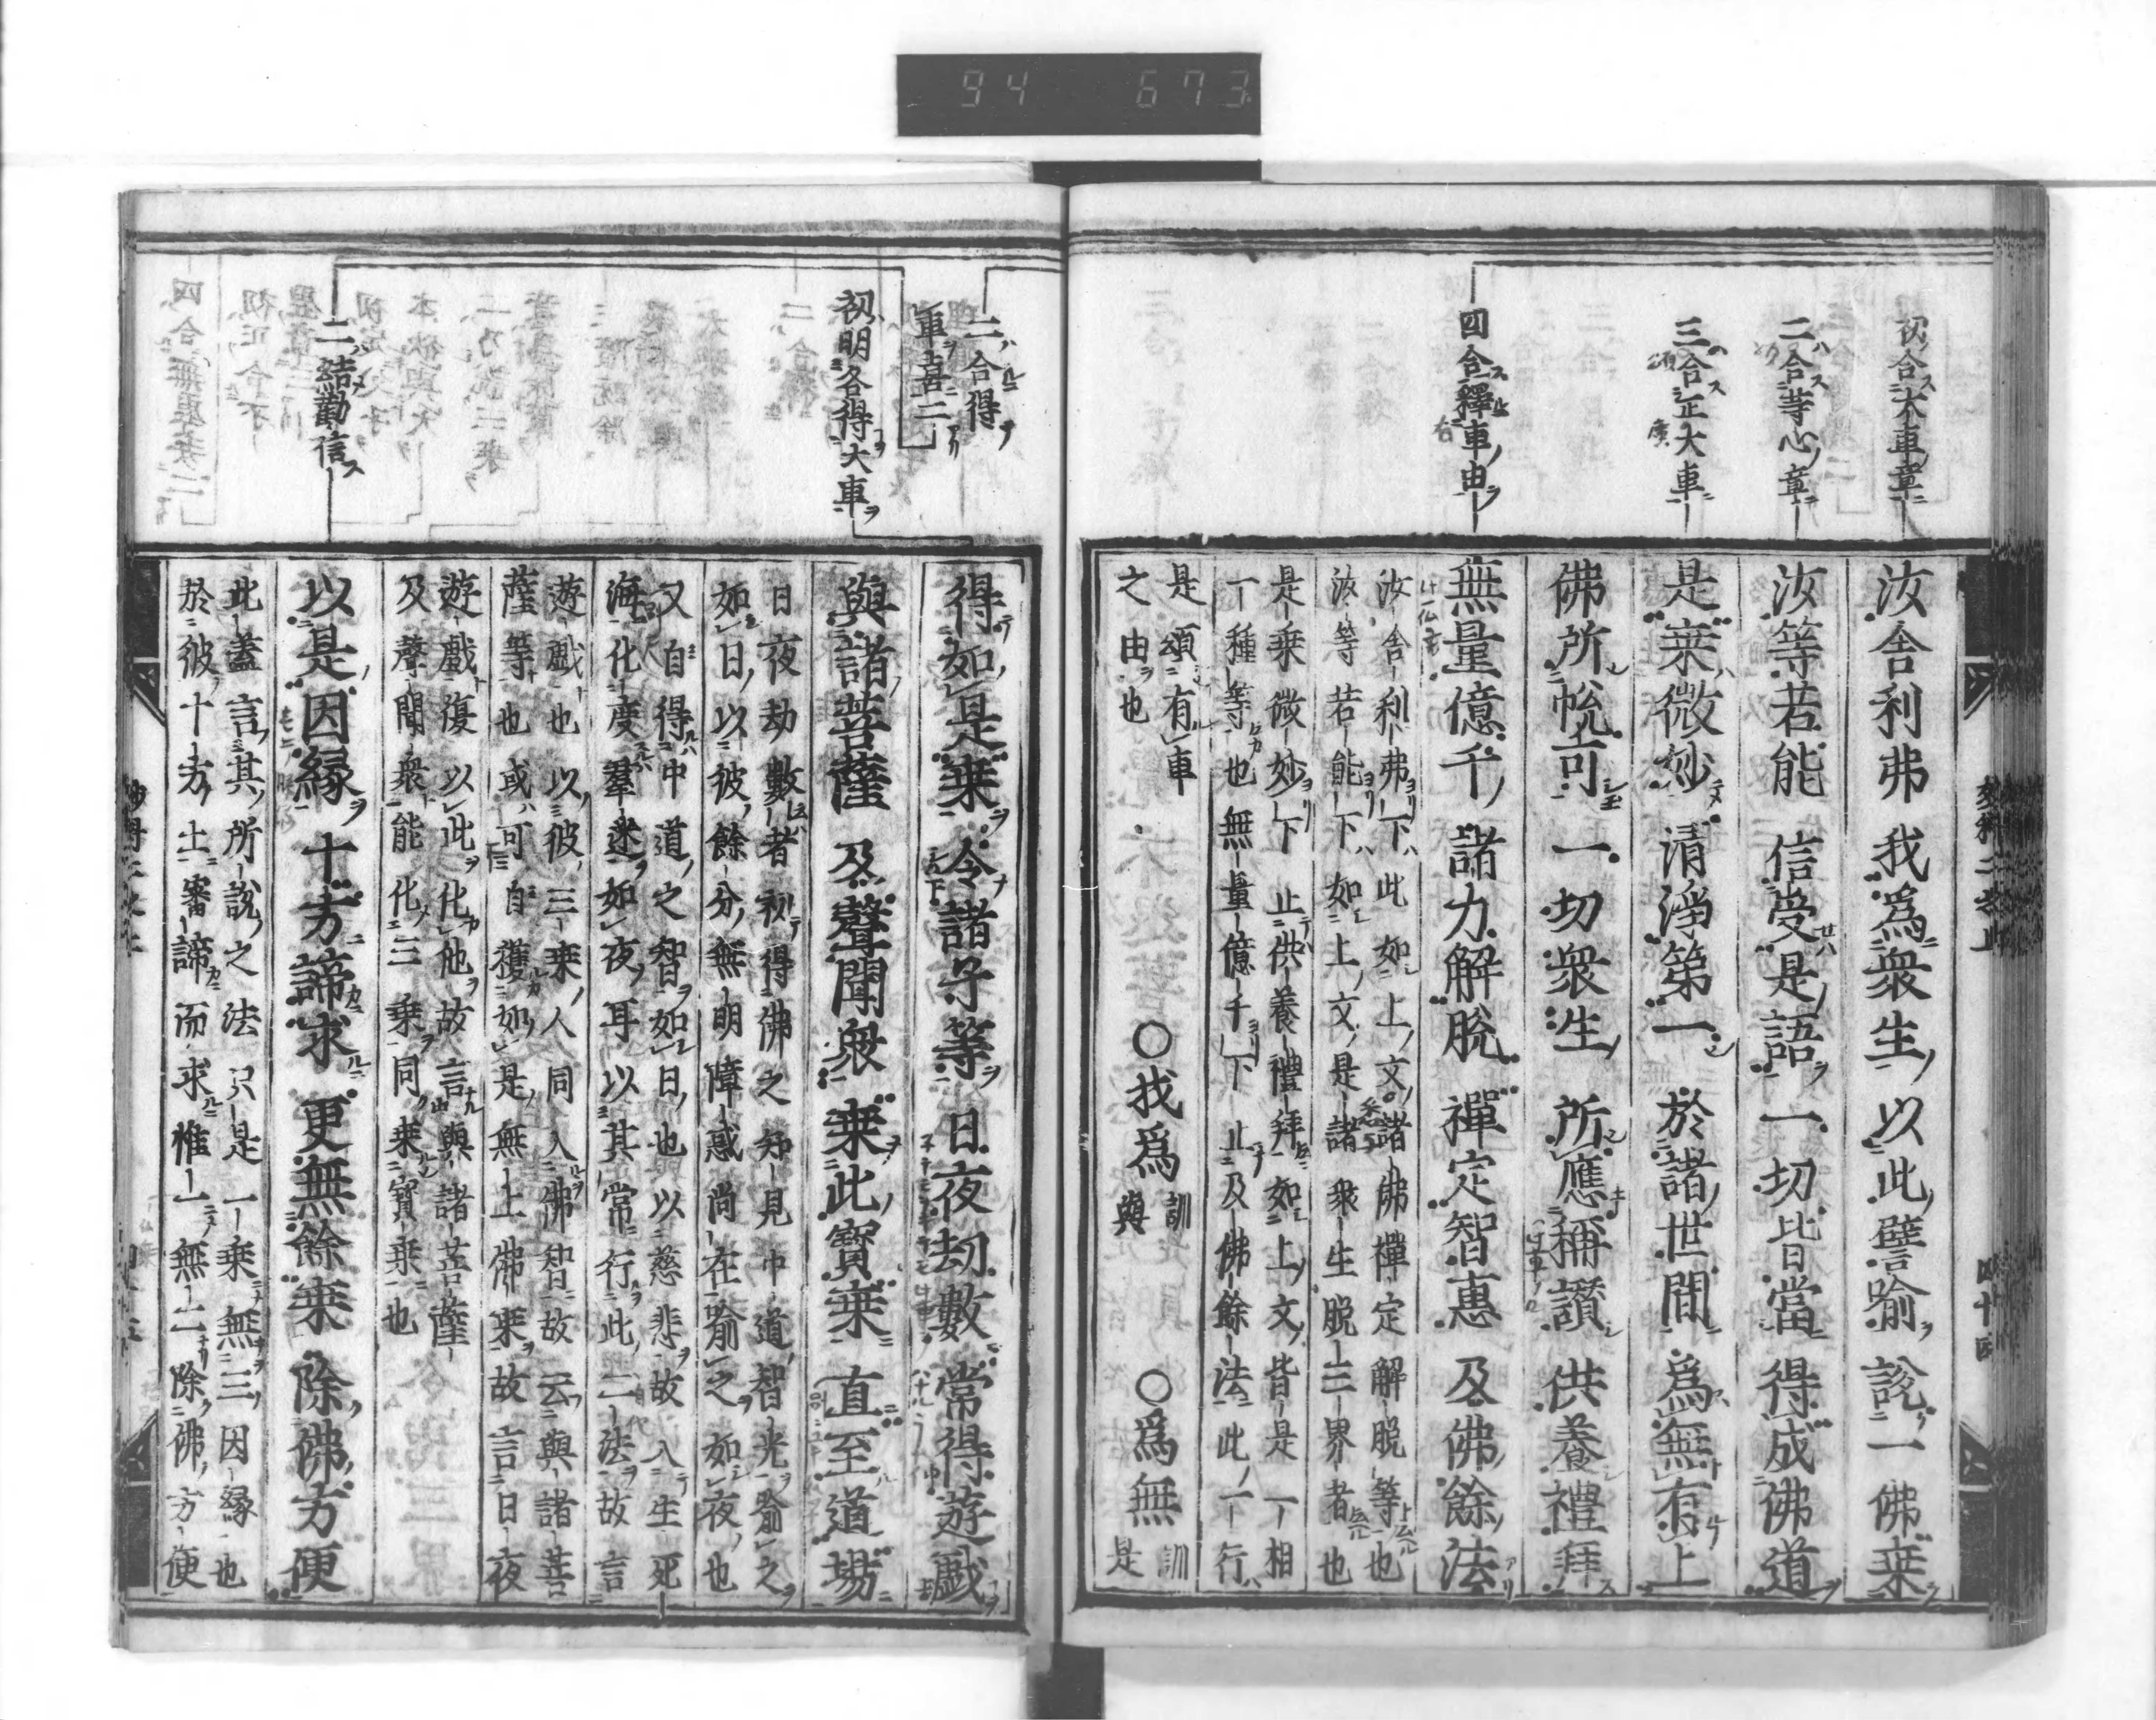 94 673
初合大車章
二合等心章
三合正大車
四合釋車由
汝舍利弗 我爲衆生 以此譬喻 說一佛乗
汝等若能 信受是語 一切皆當 得成佛道
是乗微妙 清淨第一 於諸世間 爲無有上
佛所悅可 一切衆生 所應稱讚 供養禮拜
無量億千 諸力解脫 禪定智惠 及佛餘法
汝舍利弗下此如上文諸佛禪定解脫等也
汝等若能下如上文是諸衆生脫三界者也
是乗微妙下止供養禮拜如上文皆是一相
一種等也無量億千下止及佛餘法此一行
是頌有車
之由也
○我爲訓與 ○爲無訓是
二合得
車喜二
初明各得大車
二結勸信
得如是乗 令諸子等 日夜劫數 常得遊戲
與諸菩薩 及聲聞衆 乗此寶乗 直至道場
日夜劫數者初得佛之知見中道智光喻之
如日以彼餘分無明障惑尚在喻之如夜也
又自得中道之智如日也以慈悲故入生死
海化度羣迷如夜耳以其常行此二法故言
遊戲也以彼三乗人同入佛智故云與諸菩
薩等也或可自獲如是無上佛乗故言日夜
遊戲復以此化他故言與諸菩薩
及聲聞衆能化三乗同乗寶乗也
以是因緣 十方諦求 更無餘乗 除佛方便
此蓋言其所說之法只是一乗無三因緣也
於彼十方土審諦而求惟一無二除佛方便